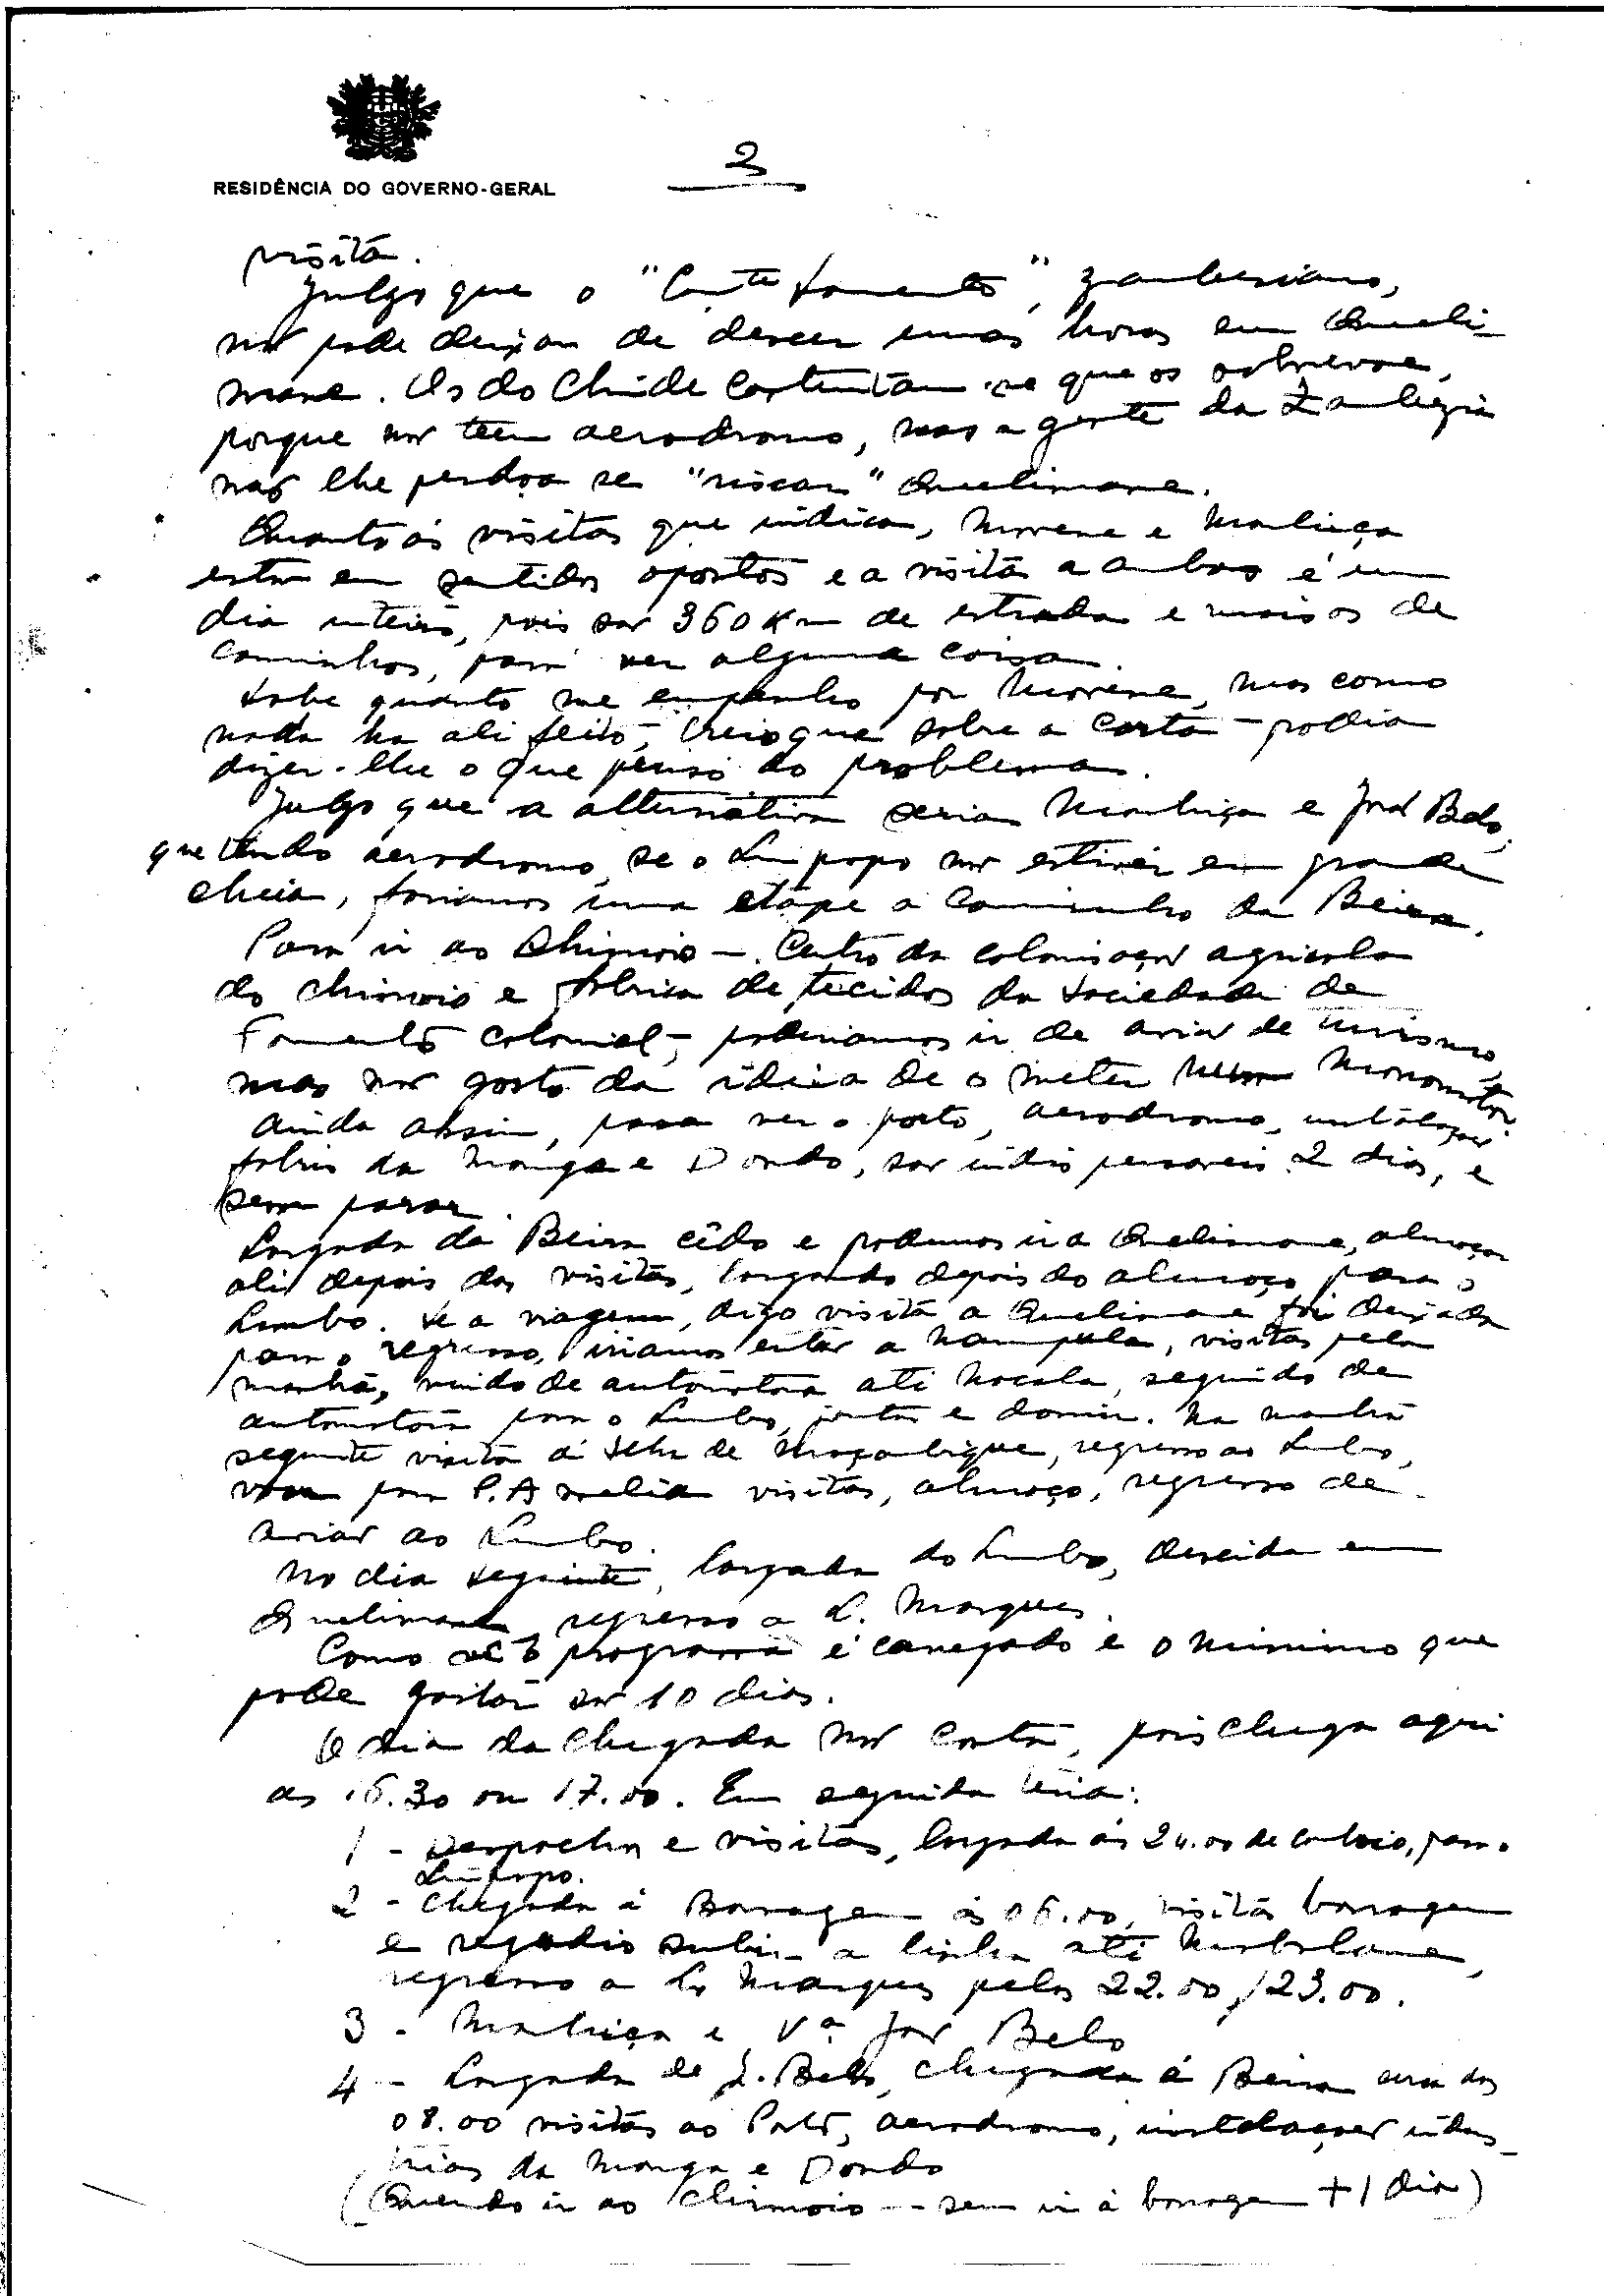 RESIDÊNCIA DO GOVERNO-GERAL
2
visita.
Julgo que o "          fomento", zambeziano,
não pode deixar de descer umas horas em Queli-
mane. Os do Chinde contentam-se que os sobrevoe,
porque não tem aerodromo, mas a gente da Zambezia
não lhe perdoa se "riscar" Quelimane.
Quanto ás visitas que indica, Movene e Manhiça
estão em sentidos opostos e a visita a ambos é um
dia inteiro, pois são 360 Km de estrada e mais os de
caminhos, para ver alguma coisa.
Sabe quanto me empenho por Movene, mas como
nada ha ali feito, creio que sobre a carta podia
dizer-lhe o que penso do problema.
Julgo que a alternativa seria Manhiça e João Belo,
que tendo aerodromo, se o Limpopo não estiver em grande
cheia, fariamos uma etape a caminho da Beira.
Para ir ao Chimoio - Centro da colonisação agricola
do Chimoio e fabrica de tecidos da Sociedade de
Fomento Colonial, poderiamos ir de avião de
mas não gosto da ideia de o meter num monomotor.
Ainda assim, para ver o porto, aerodromo, instalações
fabris da Manga e Dondo, são indispensaveis 2 dias, e
sem parar.
Largada da Beira cêdo e podemos ir a Quelimane, almoçar
ali depois das visitas, largando depois do almoço para o
Lumbo. Se a viagem, digo visita a Quelimane for deixada
para o regresso, iriamos então a Nampula, visitas pela
manhã, vindo de automotora até Nacala, seguindo de
automotora para o Lumbo, jantar e dormir. Na manhã
seguinte visita á Ilha de Moçambique, regresso ao Lumbo,
voo para P. Amelia visitas, almoço, regresso de
avião ao Lumbo.
No dia seguinte, largada do Lumbo, descida em
Quelimane, regresso a L. Marques.
Como vê o programa é carregado e o minimo que
pode gastar são 10 dias.
O dia da chegada não conta, pois chega aqui
as 16.30 ou 17.00. Em seguida teria:
1 - Despacho e visitas, largada ás 24.00 de comboio, para o
Limpopo.
2 - Chegada á Barragem ás 06.00, visita barragem
e regadio subir a linha até Mabalane,
regresso a L. Marques pelas 22.00/23.00.
3 - Manhiça e Vª João Belo
4 - Largada de J. Belo, chegada á Beira cerca das
08.00 visitas ao Porto, aerodromo, instalações indus-
trias da Manga e Dondo
(Querendo ir ao Chimoio -- sem ir á barragem + 1 dia)